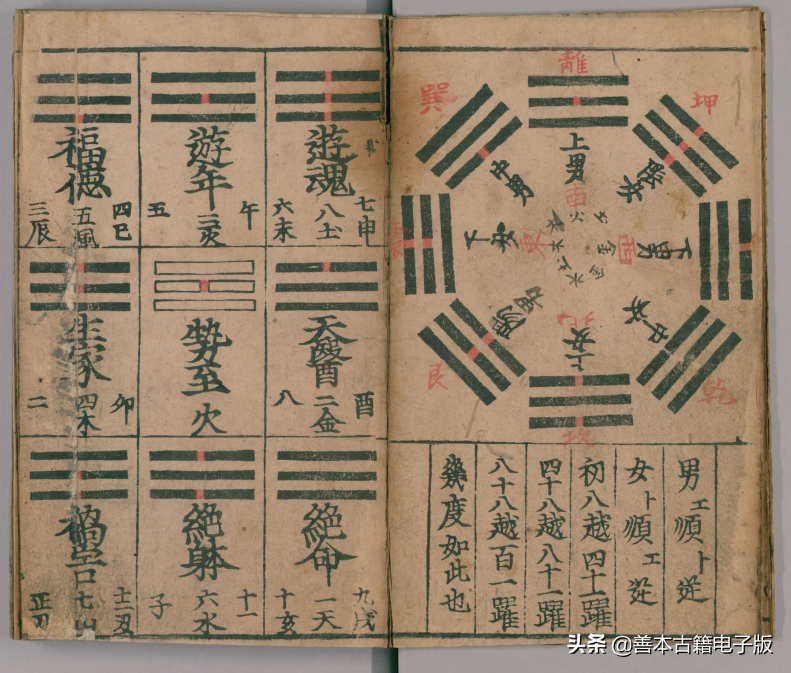 離
坤
巽
艮
乾
坎
上男
中男
南
西
東
上女
男エ順ト逆
女ト順エ逆
初八越四十一躍
四十八越八十一躍
八十八越百一躍
幾度如此也
遊魂
七申
八土
六未
遊年
午
三火
五
福德
四巳
五風
三辰
天醫
酉
二金
八
勢至
火
生家
卯
四木
二
絶命
九戌
一天
十亥
絶躰
十一
六水
子
禍害
十二丑
七山
正刀
头条 @善本古籍电子版